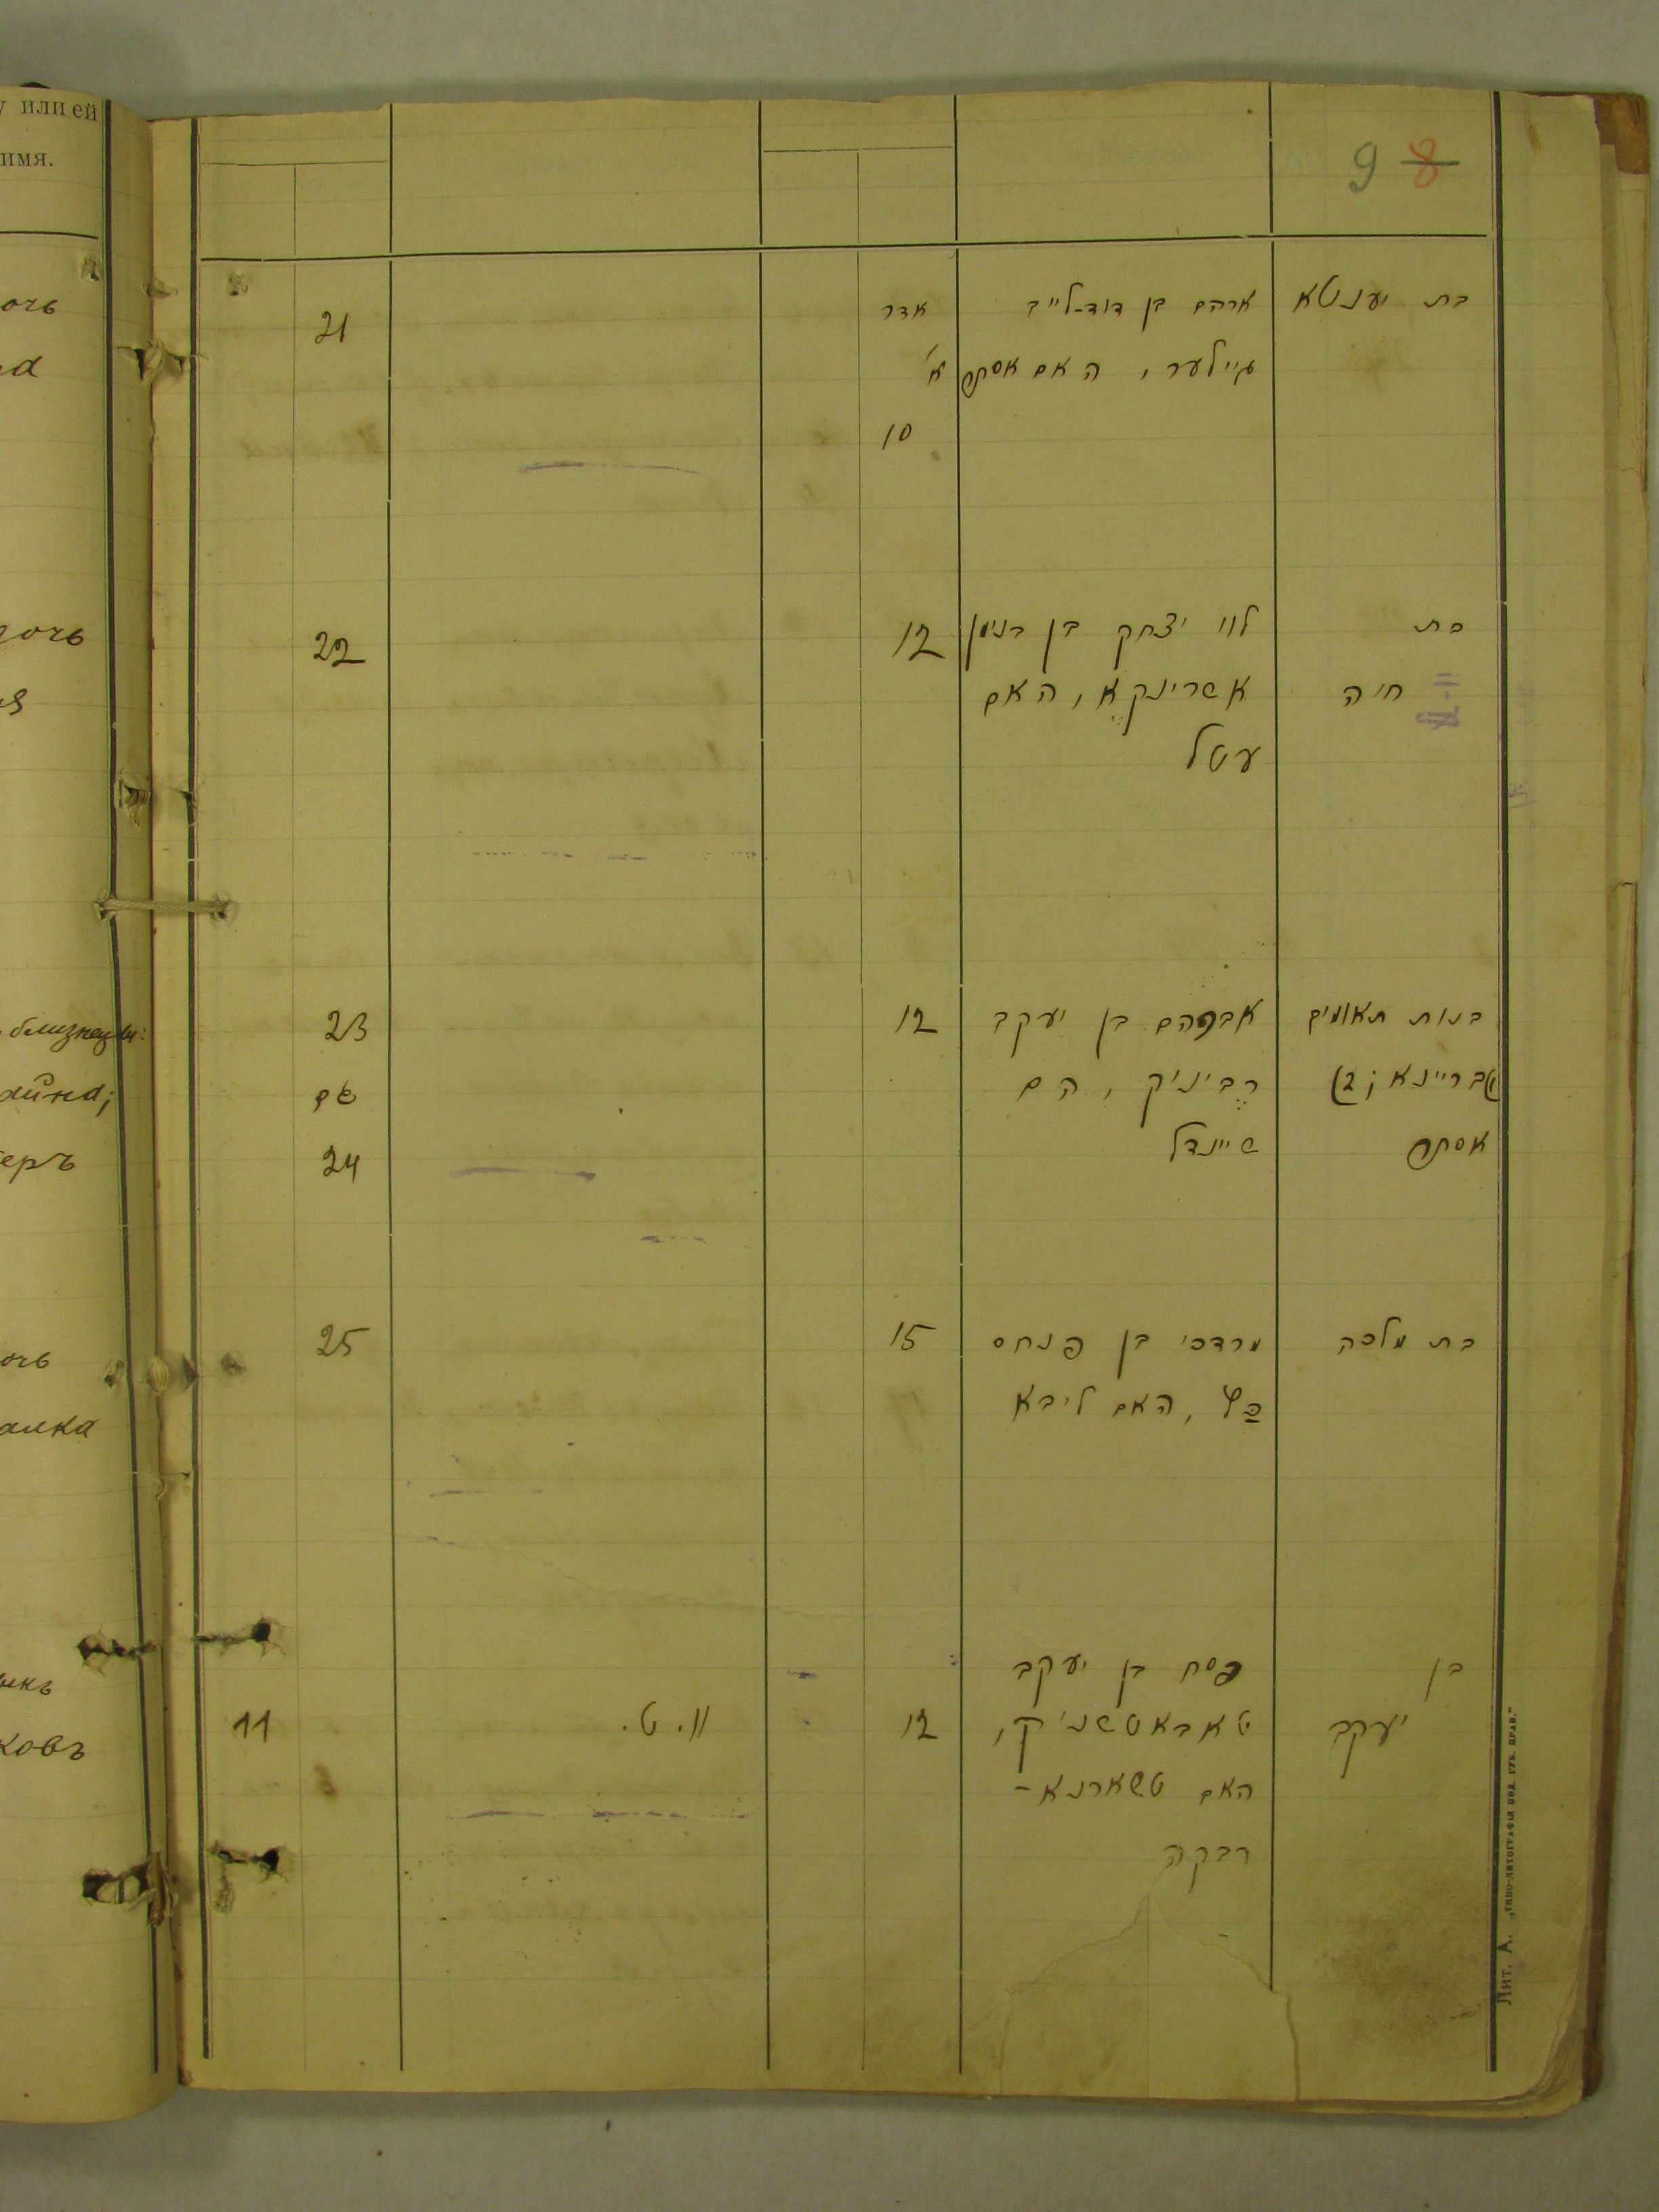 у или ей
имя.
9 8
очь
на
בת יענטא
ארהם בן דוד-לייב
אדר
21
גיילער, האם אסתר
א'
10
дочь
בת
לוי יצחק בן בנימן
12
22
חיה
אשרינקא, האם
עטל
близнецы:
айна;
еръ
בנות תאומים
אברהם בן יעקב
12
23
1) בריינא; 2)
רביניק, הם
גם
אסתר
שיינדל
24
очь
алка
בת מלכה
מרדכי בן פנחס
15
25
כץ, האם ליבא
ынъ
ковъ
בן
פסח בן יעקב
יעקב
טאבאטשניק,
12
11
האם טשארנא-
רבקה
Лит. А. „Типо-литографія